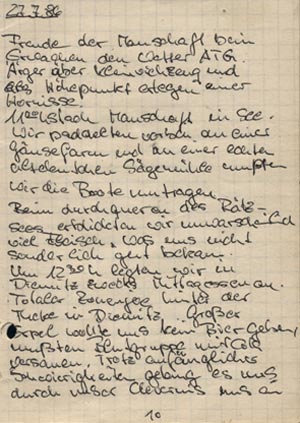 27.7.86
Freude der Manschaft beim
Erwachen den Wetter ATG.
Ärger über Kleinviehzeug und
als Höhepunkt erlegen einer
Hornisse!
11⁰⁰ Uhr stach Manschaft in See.
Wir paddelten vorbei an einer
Gänsefarm und an einer
altdeutschen Sägemühle mußten
wir die Boote umtragen.
Beim durchqueren des Rätz-
sees erblickten wir unwarscheinlich
viel Fleisch, was uns nicht
sonderlich gut bekam.
Um 12³⁰ h legten wir in
Diemitz zwecks Mittagessen an.
Totaler hinter der
Theke in Diemitz. Großer
wollte uns kein Bier geben,
mußten
Trotz anfänglicher
Schwierigkeiten gelang es uns
durch unser uns an
10